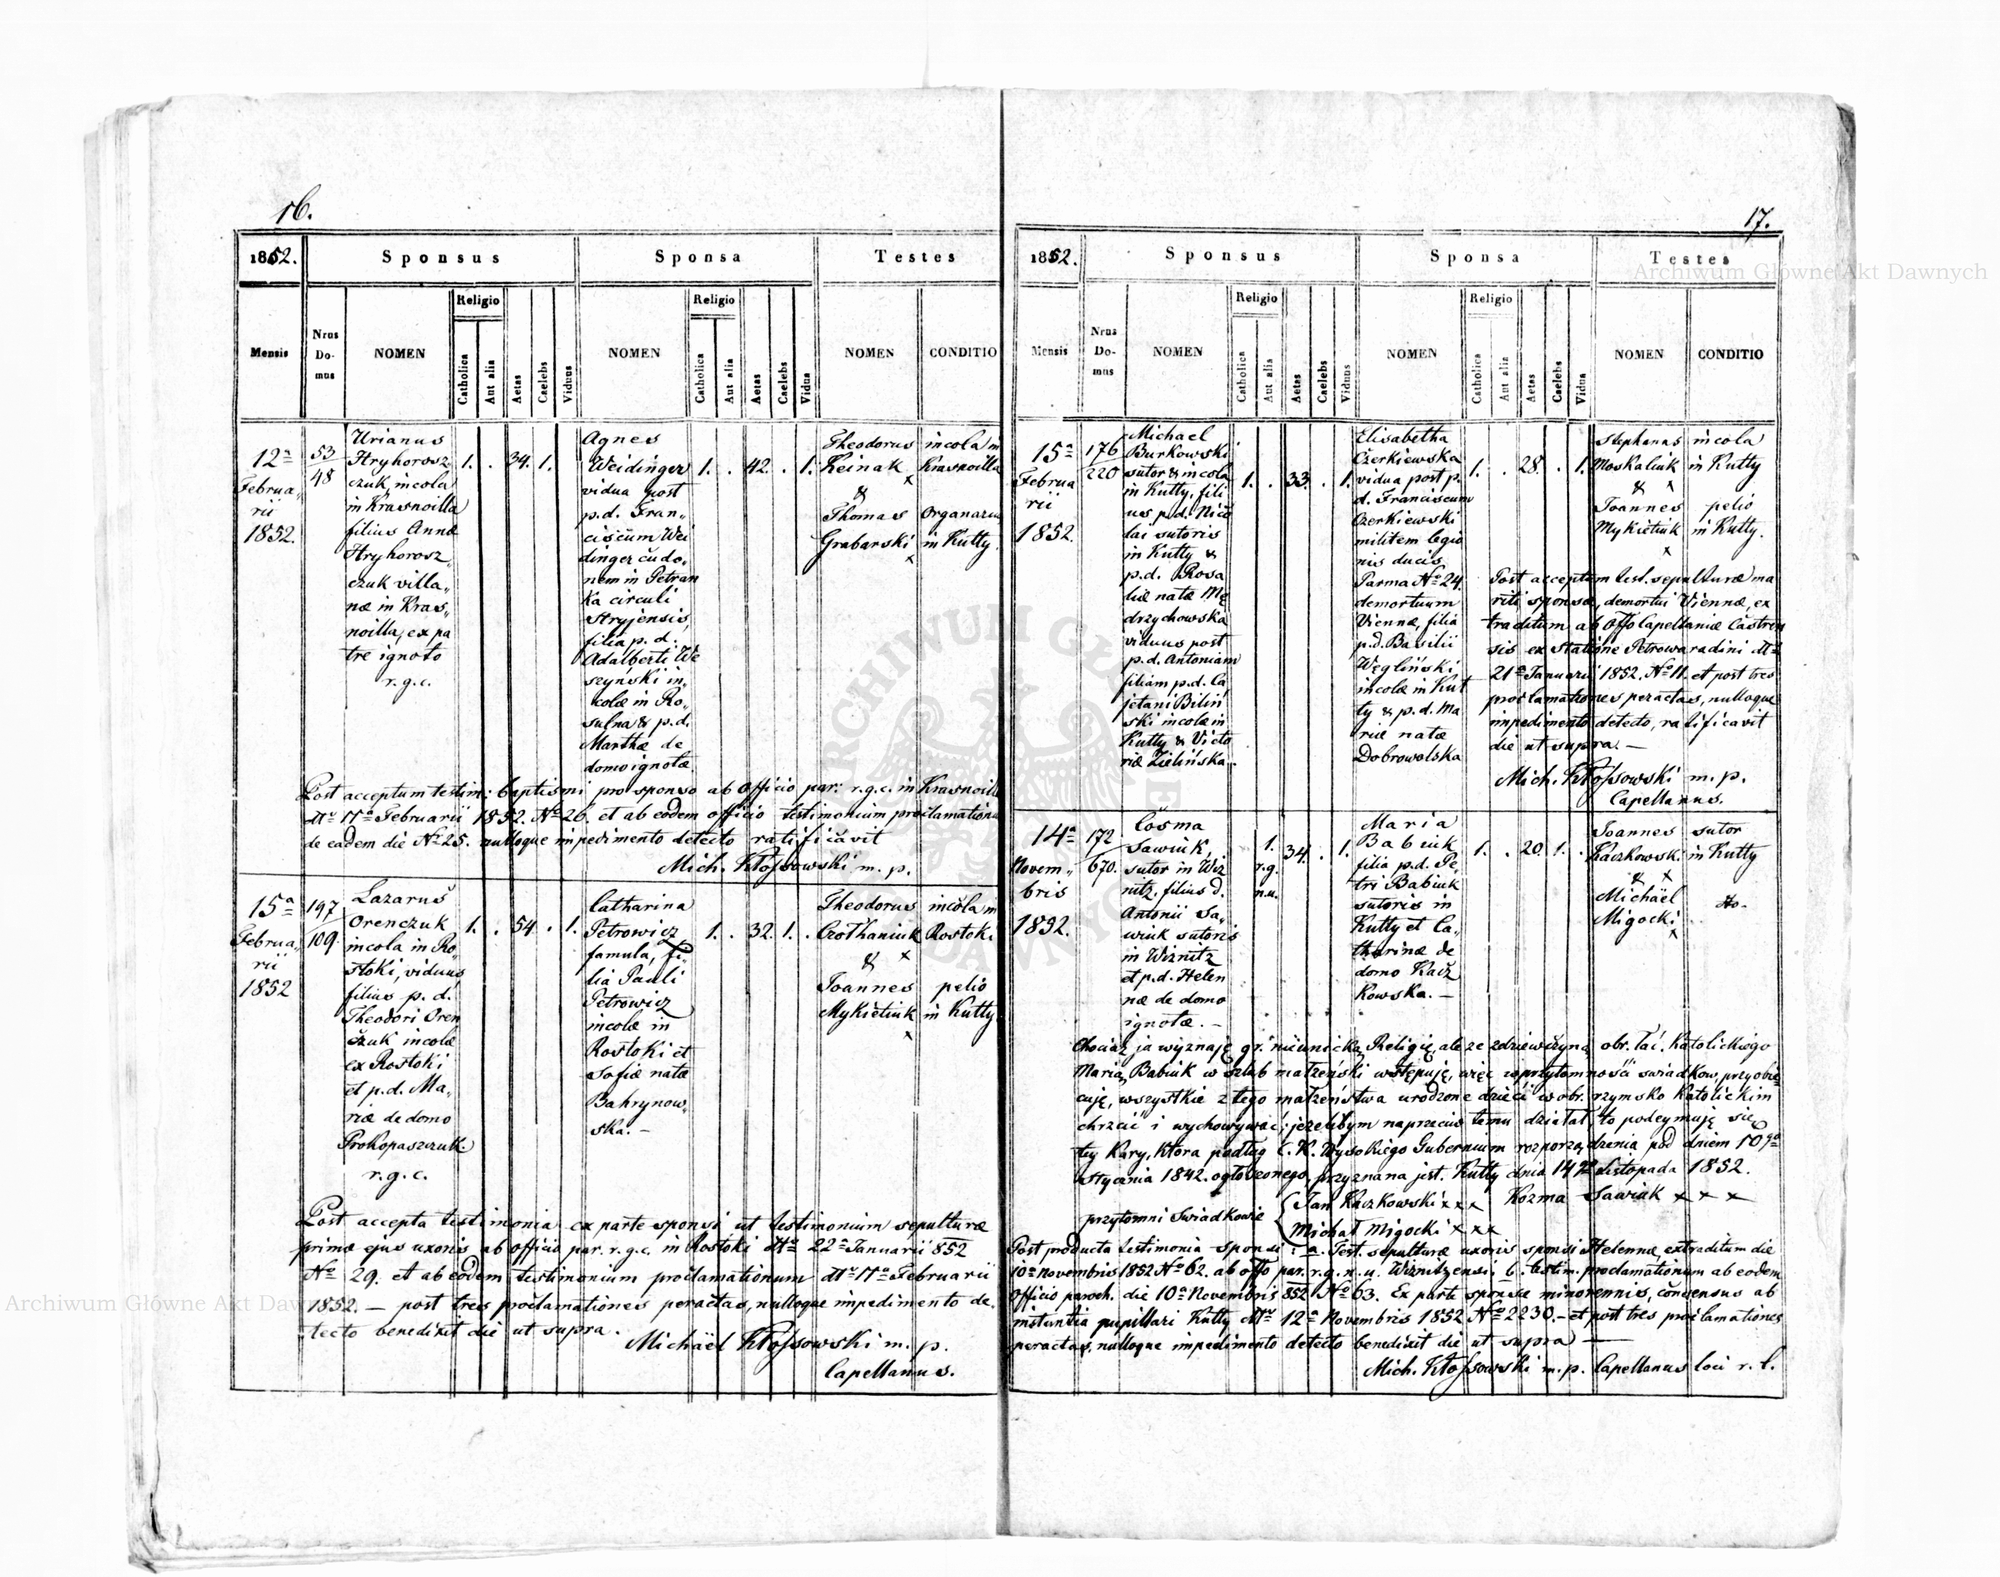 16.
1852.
Sponsus
Sponsa
Testes
Mensis
Nrus Domus
NOMEN
Religio
Catholica
Aut alia
Aetas
Caelebs
Viduus
NOMEN
Religio
Catholica
Aut alia
Aetas
Caelebs
Vidua
NOMEN
CONDITIO
12a
Februa„
rii
1852.
53
48
Urianus
Hryhorosz„
czuk, incola
in Krasnoilla
filius Annæ
Hryhorosz„
czuk villa„
næ in Kras„
noilla, ex pa
tre ignoto
r.g.c.
1. . 34. 1.
Agnes
Weidinger
vidua post
p.d. Fran„
ciscum Wei
dinger cudo„
nem in Petran
ka circuli
Stryjensis,
filia p.d.
Adalberti We
szynski in„
colæ in Ro„
sulna & p.d.
Marthæ de
domo ignotæ.
1. . 42. . 1.
Theodorus
Keinak
x
&
Thomas
Grabarski
x
incola in
Krasnoilla
Organarius
in Kutty.
Post acceptum testim: baptismi pro sponso ab Officio par: r.g.c. in Krasnoilla
dto 11a Februarii 1852. No 26. et ab eodem officio testimonium proclamationu
de eadem die No 25. nulloque impedimento detecto ratificavit
Mich. Kłossowski m. p.
15a
Februa„
rii
1852
197
109
Lazarus
Orenczuk
incola in Ro„
stoki, viduus
filius p.d.
Theodori Oren
czuk incolæ
ex Rostoki
et p.d. Ma„
riæ de domo
Prokopaszczuk
r.g.c.
1. . 54. . 1.
Catharina
Petrowicz
famula, fi„
lia Pauli
Petrowicz
incolæ in
Rostoki et
Sofiæ natæ
Bahrynow„
ska. —
1. . 32. 1. .
Theodorus
Crothaniuk
&
x
Joannes
Mykietiuk
x
incola in
Rostoki
pelio
in Kutty
Post accepta testimonia ex parte sponsi ut testimonium sepulturæ
primæ ejus uxoris ab officio par. r.g.c. in Rostoki dto 22a Januarii 852
No 29. et ab eodem testimonium proclamationum dto 11a Februarii
1852. — post tres proclamationes peractas, nulloque impedimento de„
tecto benedixit die ut supra.
Michaël Kłossowski m. p.
Capellanus.
17.
1852.
Sponsus
Sponsa
Testes
Mensis
Nrus Domus
NOMEN
Religio
Catholica
Aut alia
Aetas
Caelebs
Viduus
NOMEN
Religio
Catholica
Aut alia
Aetas
Caelebs
Vidua
NOMEN
CONDITIO
15a
Februa
rii
1852.
176
220
Michael
Burkowski
sutor & incola
in Kutty, fili
us p.d. Nico
lai sutoris
in Kutty &
p.d. Rosa
liæ natæ Mę
drzychowska
viduus post
p.d. Antoniam
filiam p.d. Ca
jetani Biliń
ski incolæ in
Kutty & Victo
riæ Zielińska.
1. . 33. . 1.
Elisabetha
Czerkiewska
vidua post p.
d. Franciscum
Czerkiewski
militem legio
nis ducis
Parma No 24.
demortuum
Viennæ, filia
p.d. Basilii
Węgliński
incolæ in Kut
ty & p.d. Ma
riæ natæ
Dobrowolska
1. . 28. . 1.
Stephanus
Moskaliuk
& x
Joannes
Mykietiuk
x
incola
in Kutty
pelio
in Kutty.
Post acceptum test. sepulturæ ma
riti sponsæ, demortui Viennæ, ex
traditum ab Offo Capellaniæ Castren
sis ex statione Petrowaradini dto
21a Januarii 1852. No 11. et post tres
proclamationes peractas, nulloque
impedimento detecto, ratificavit
die ut supra. —
Mich. Kłossowski m. p.
Capellanus.
14a
Novem„
bris
1852.
172
670.
Cosma
Sawiuk,
sutor in Wiz
nitz, filius d.
Antonii Sa„
wiuk sutoris
in Wiznitz
et p.d. Helen
næ de domo
ignotæ. —
1.
r.g.
n.u.
34. . 1.
Maria
Babiuk
filia p.d. Pe„
tri Babiuk
sutoris in
Kutty et Ca„
tharinæ de
domo Kacz
kowska. —
1. . 20. 1. .
Joannes
Kaczkowski
& x
Michaël
Migocki
x
sutor
in Kutty
do-
Chociaż ja wyznaję gr. nieunicką Religię, ale ze zdziewczyną obr. łać. Katolickiego
Marią Babiuk w szlub małżenski wstępuję, więc wprzytomności swiadkow, przyobie„
cuję, wszystkie z tego małżeństwa urodzone dzieci w obr. rzymsko Katolickim
chrzcić i wychowywać; jezelibym naprzeciw temu działał, to podeymuję się
tey kary, ktora podług C. K. Wysokiego Gubernium rozporządzenia pod dniem 10go
Stycznia 1842. ogłoszonego, przyznana jest. Kutty dnia 14go Listopada 1852.
Kozma Sawiuk x x x
przytomni Swiadkowie
Jan Kaczkowski x x x
Michał Migocki x x x
Post producta testimonia sponsi: a. Test. sepulturæ uxoris sponsi Helennæ, extraditum die
10a Novembris 1852 No 62. ab offo par. r.g.n.u. Wiznitzensi, b. testim. proclamationum ab eodem
Officio paroch. die 10a Novembris 852 No 63. Ex parte sponsæ minorennis, consensus ab
instantia pupillari Kutty dto 12a Novembris 1852 No 2230. — et post tres proclamationes
peractas, nulloque impedimento detecto benedixit die ut supra —
Mich. Kłossowski m. p. Capellanus loci r. l.
Archiwum Główne Akt Dawnych
Archiwum Główne Akt Dawnych
ARCHIWUM GŁÓWNE AKT DAWNYCH